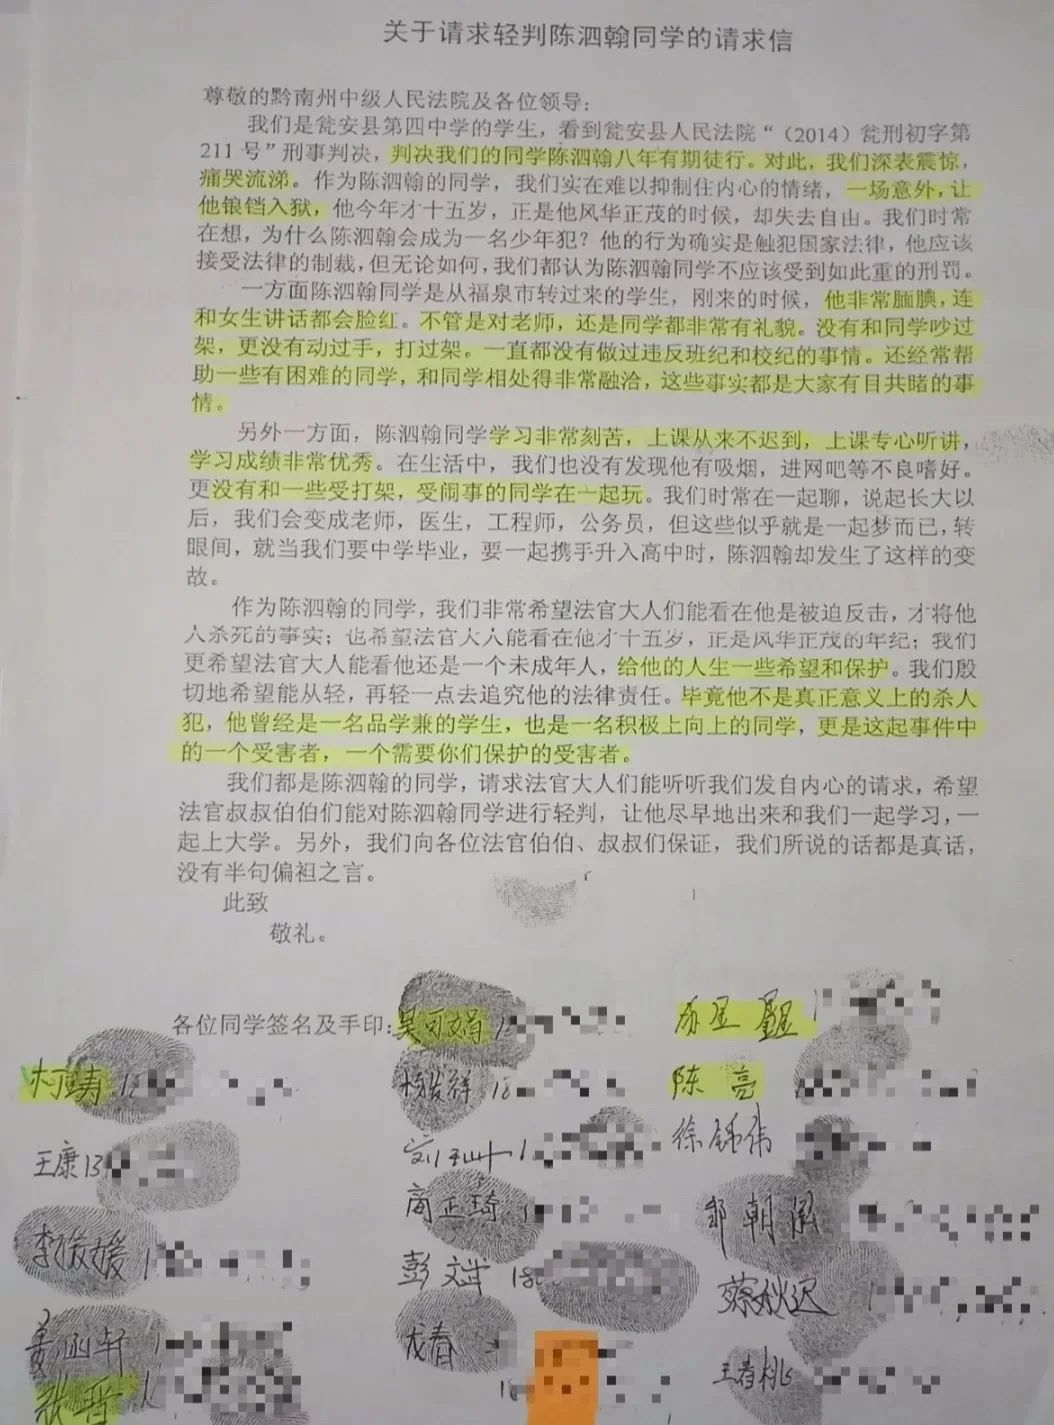 关于请求轻判陈泗翰同学的请求信
尊敬的黔南州中级人民法院及各位领导：
我们是瓮安县第四中学的学生，看到瓮安县人民法院“（2014）瓮刑初字第
211号”刑事判决，判决我们的同学陈泗翰八年有期徒行。对此，我们深表震惊，
痛哭流涕。作为陈泗翰的同学，我们实在难以抑制住内心的情绪，一场意外，让
他锒铛入狱，他今年才十五岁，正是他风华正茂的时候，却失去自由。我们时常
在想，为什么陈泗翰会成为一名少年犯？他的行为确实是触犯国家法律，他应该
接受法律的制裁，但无论如何，我们都认为陈泗翰同学不应该受到如此重的刑罚。
一方面陈泗翰同学是从福泉市转过来的学生，刚来的时候，他非常腼腆，连
和女生讲话都会脸红。不管是对老师，还是同学都非常有礼貌。没有和同学吵过
架，更没有动过手，打过架。一直都没有做过违反班纪和校纪的事情。还经常帮
助一些有困难的同学，和同学相处得非常融洽，这些事实都是大家有目共睹的事
情。
另外一方面，陈泗翰同学学习非常刻苦，上课从来不迟到，上课专心听讲，
学习成绩非常优秀。在生活中，我们也没有发现他有吸烟，进网吧等不良嗜好。
更没有和一些受打架，受闹事的同学在一起玩。我们时常在一起聊，说起长大以
后，我们会变成老师，医生，工程师，公务员，但这些似乎就是一起梦而已，转
眼间，就当我们要中学毕业，要一起携手升入高中时，陈泗翰却发生了这样的变
故。
作为陈泗翰的同学，我们非常希望法官大人们能看在他是被迫反击，才将他
人杀死的事实；也希望法官大人能看在他才十五岁，正是风华正茂的年纪；我们
更希望法官大人能看他还是一个未成年人，给他的人生一些希望和保护。我们殷
切地希望能从轻，再轻一点去追究他的法律责任。毕竟他不是真正意义上的杀人
犯，他曾经是一名品学兼的学生，也是一名积极上向上的同学，更是这起事件中
的一个受害者，一个需要你们保护的受害者。
我们都是陈泗翰的同学，请求法官大人们能听听我们发自内心的请求，希望
法官叔叔伯伯们能对陈泗翰同学进行轻判，让他尽早地出来和我们一起学习，一
起上大学。另外，我们向各位法官伯伯、叔叔们保证，我们所说的话都是真话，
没有半句偏袒之言。
此致
敬礼。
各位同学签名及手印：
陈亮
王康 13
徐锺伟
商正琦
李媛媛
彭文斌 18
姜函轩
龙春
王春桃